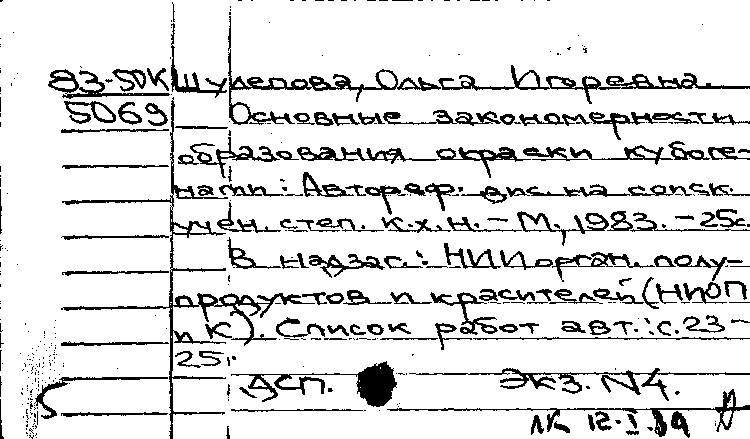 83-50К Шулепова, Ольга Игоревна.
5069 Основные закономерности
образования окраски кубоге-
нами: Автореф. дис. на соиск.
учен. степ. к.х.н. - М., 1983. - 25с
В надзаг.: НИИ орган. полу-
продуктов и красителей (НИОП
и К). Список работ авт.: с. 23-
25.
ДСП. Экз. N4.
5 12.I.84